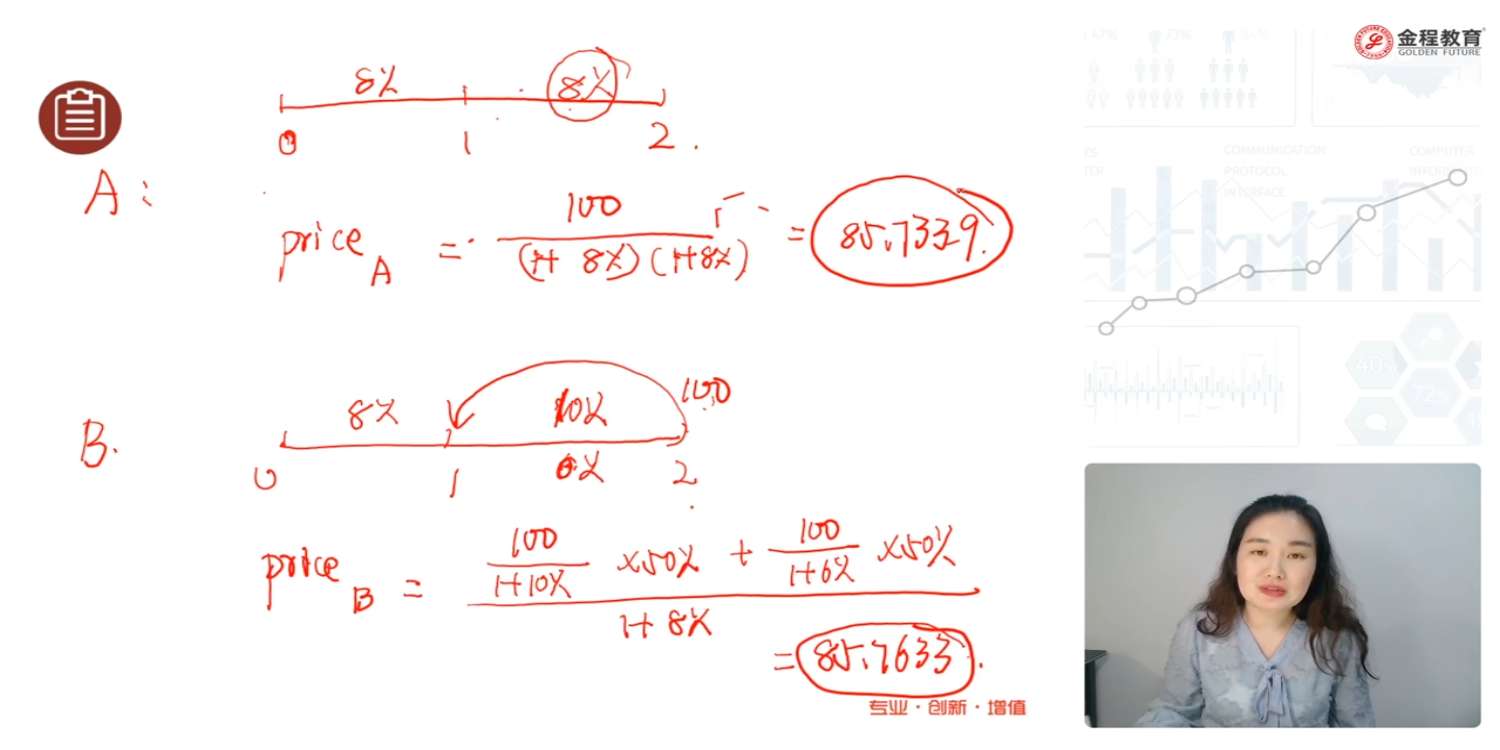 金程教育
GOLDEN FUTURE
8% 8%
0 1 2.
A:
price A = 100 / (1+8%)(1+8%) = 85.7339.
8% 10% 100
B.
0 1 6% 2
price B = (100 / 1+10% ×50% + 100 / 1+6% ×50%) / 1+8%
= 85.7633.
专业·创新·增值
COMMUNICATION
PROTOCOL
INTERFACE
COMPUTER
40%
72%